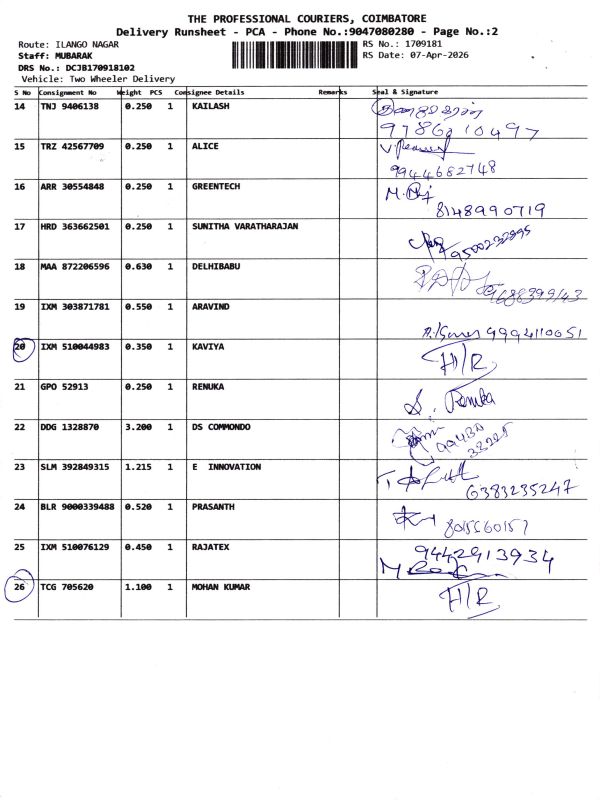 THE PROFESSIONAL COURIERS, COIMBATORE
Delivery Runsheet - PCA - Phone No.:9047080280 - Page No.:2
Route: ILANGO NAGAR RS No.: 1709181
Staff: MUBARAK RS Date: 07-Apr-2026
DRS No.: DCJB170918102
Vehicle: Two Wheeler Delivery
S No Consignment No Weight PCS Consignee Details Remarks Seal & Signature
14 TNJ 9406138 0.250 1 KAILASH
9786210497
15 TRZ 42567709 0.250 1 ALICE
9944682748
16 ARR 30554848 0.250 1 GREENTECH
8148990719
17 HRD 363662501 0.250 1 SUNITHA VARATHARAJAN
9500232895
18 MAA 872206596 0.630 1 DELHIBABU
19 IXM 303871781 0.550 1 ARAVIND
9994110051
20 IXM 510044983 0.350 1 KAVIYA H/R
21 GPO 52913 0.250 1 RENUKA S. Renuka
22 DDG 1328870 3.200 1 DS COMMONDO
23 SLM 392849315 1.215 1 E INNOVATION
6383235247
24 BLR 9000339488 0.520 1 PRASANTH
8015560157
25 IXM 510076129 0.450 1 RAJATEX 9442913934
26 TCG 705620 1.100 1 MOHAN KUMAR H/R